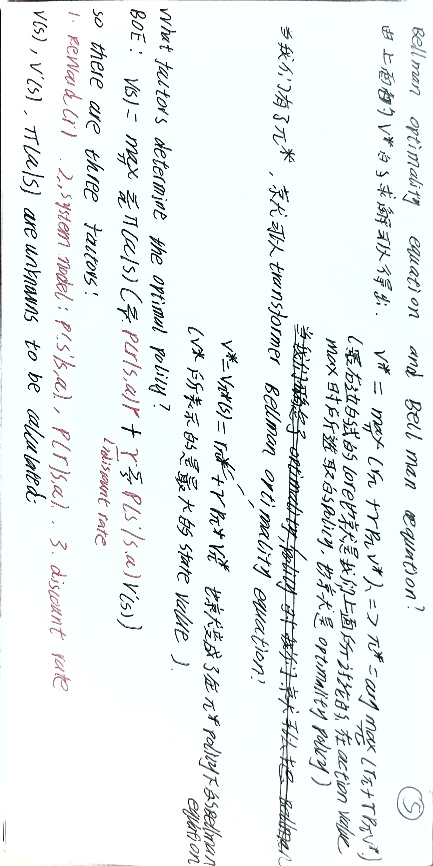 ⑤
Bellman optimality equation and Bellman equation?
由上面的 V* 的求解可以得出. V* = max_π (r_π + γP_π V*) => π* = arg max_π (r_π + γP_π V*)
max 时所选取的policy, 也就是 optimality policy)
当我们有了 π*, 就可以 transformer Bellman optimality equation:
V* = V_π*(s) = r_π* + γP_π* V_π* 也就变成了在 π* policy 下的 Bellman equation
(V* 所表示的是最大的 state value).
What factors determine the optimal policy?
BOE: V(s) = max_π Σ π(a|s) (Σ P(r|s,a)r + γ Σ P(s'|s,a) V(s'))
discount rate
so there are three factors:
1. reward (r). 2. system model: P(s'|s,a), P(r|s,a). 3. discount rate
V(s), V(s'), π(a|s) are unknowns to be calculated.